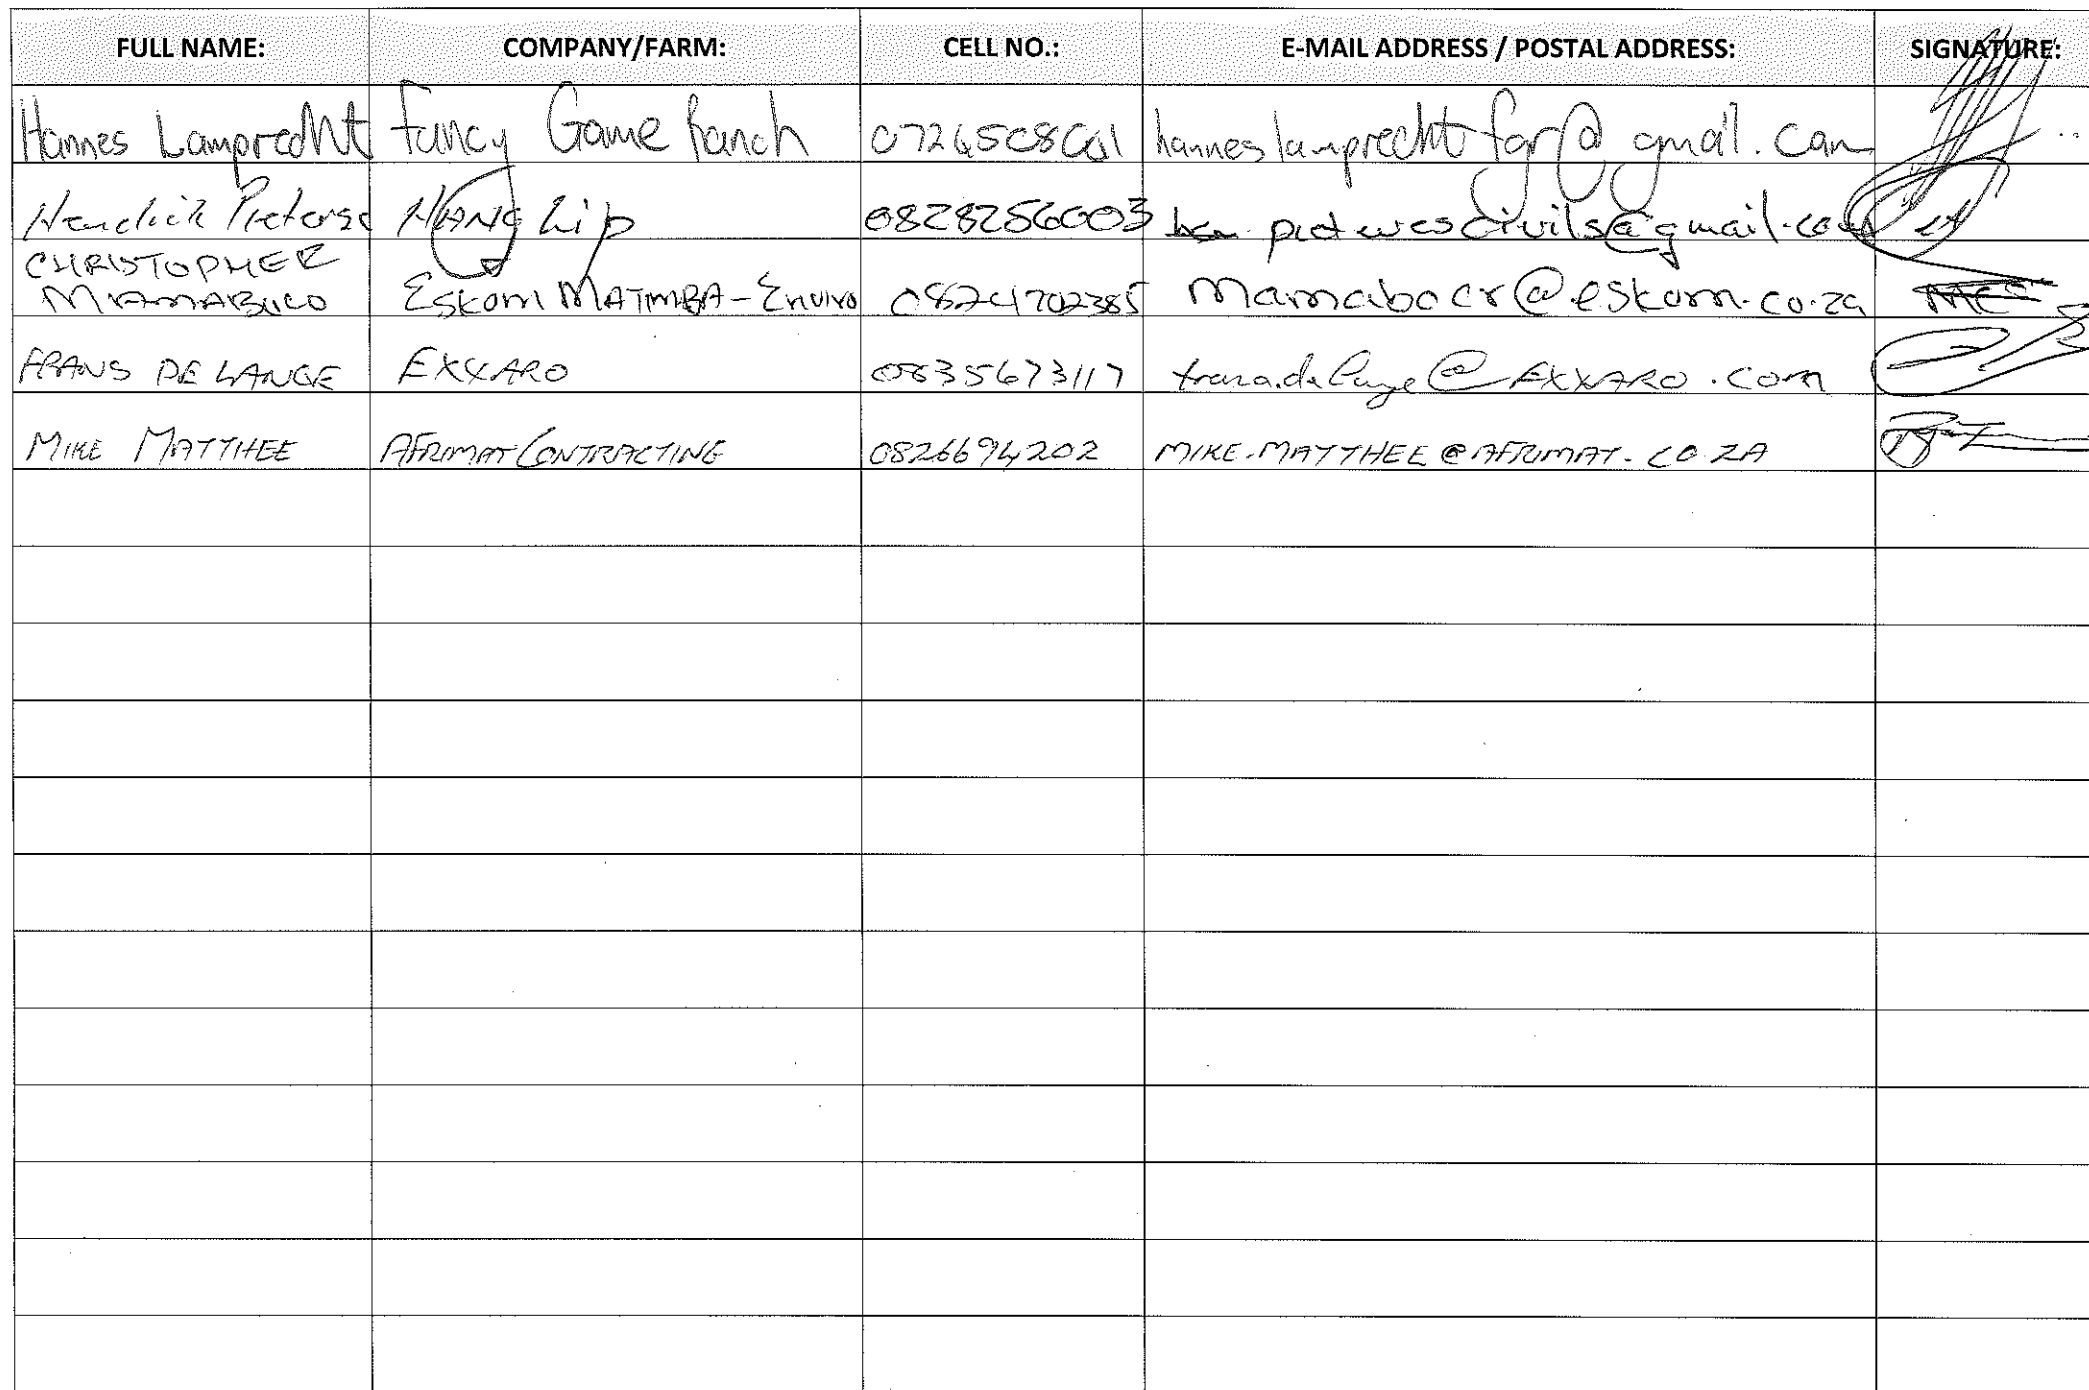 FULL NAME: COMPANY/FARM: CELL NO.: E-MAIL ADDRESS / POSTAL ADDRESS: SIGNATURE:
Hannes Lamprecht Fancy Game Ranch hanneslamprechtfgr@gmail.com
Hendrick Pieterse HANGLip 0828256003
CHRISTOPHER
MAMABOLO Eskom MATIMBA-Enviro 0824702385 mamabocr@eskom.co.za
FRANS DE LANGE EXXARO 0835673117 frans.delange@EXXARO.com
MIKE MATTHEE AFRIMAT CONTRACTING 0826694202 MIKE.MATTHEE@AFRIMAT.CO.ZA